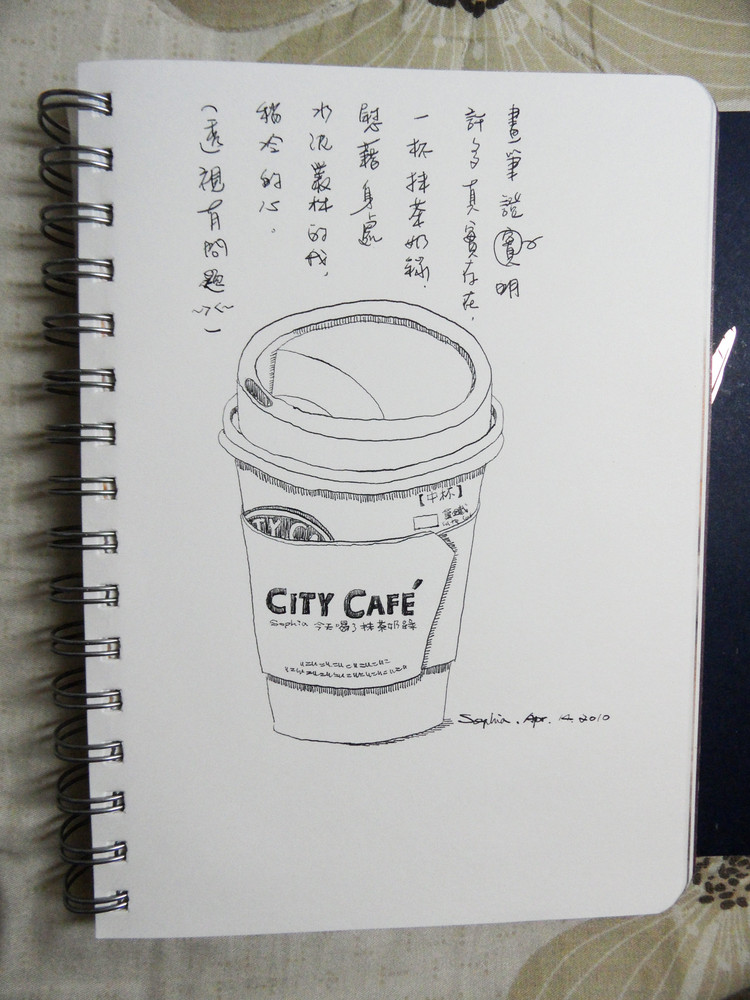 畫筆證實明
許多真實存在，
一杯抹茶奶綠，
慰藉身處
水泥叢林的我，
稍冷的心。
(透視有問題><)
【中杯】
TY CA
CITY CAFÉ
Sophia 今天喝了抹茶奶綠
Sophia. Apr. 14. 2010